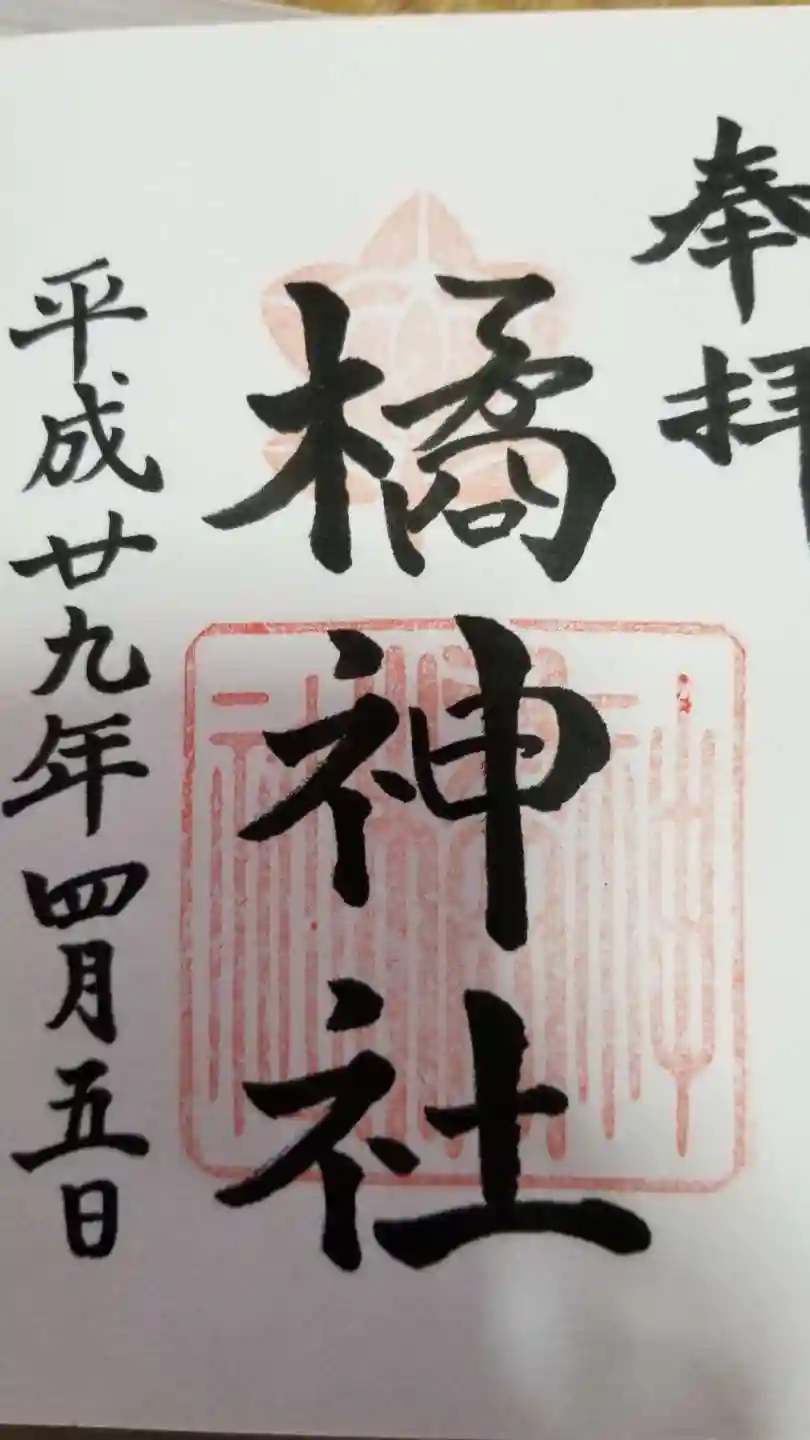 奉拝
橘神社
平成廿九年四月五日